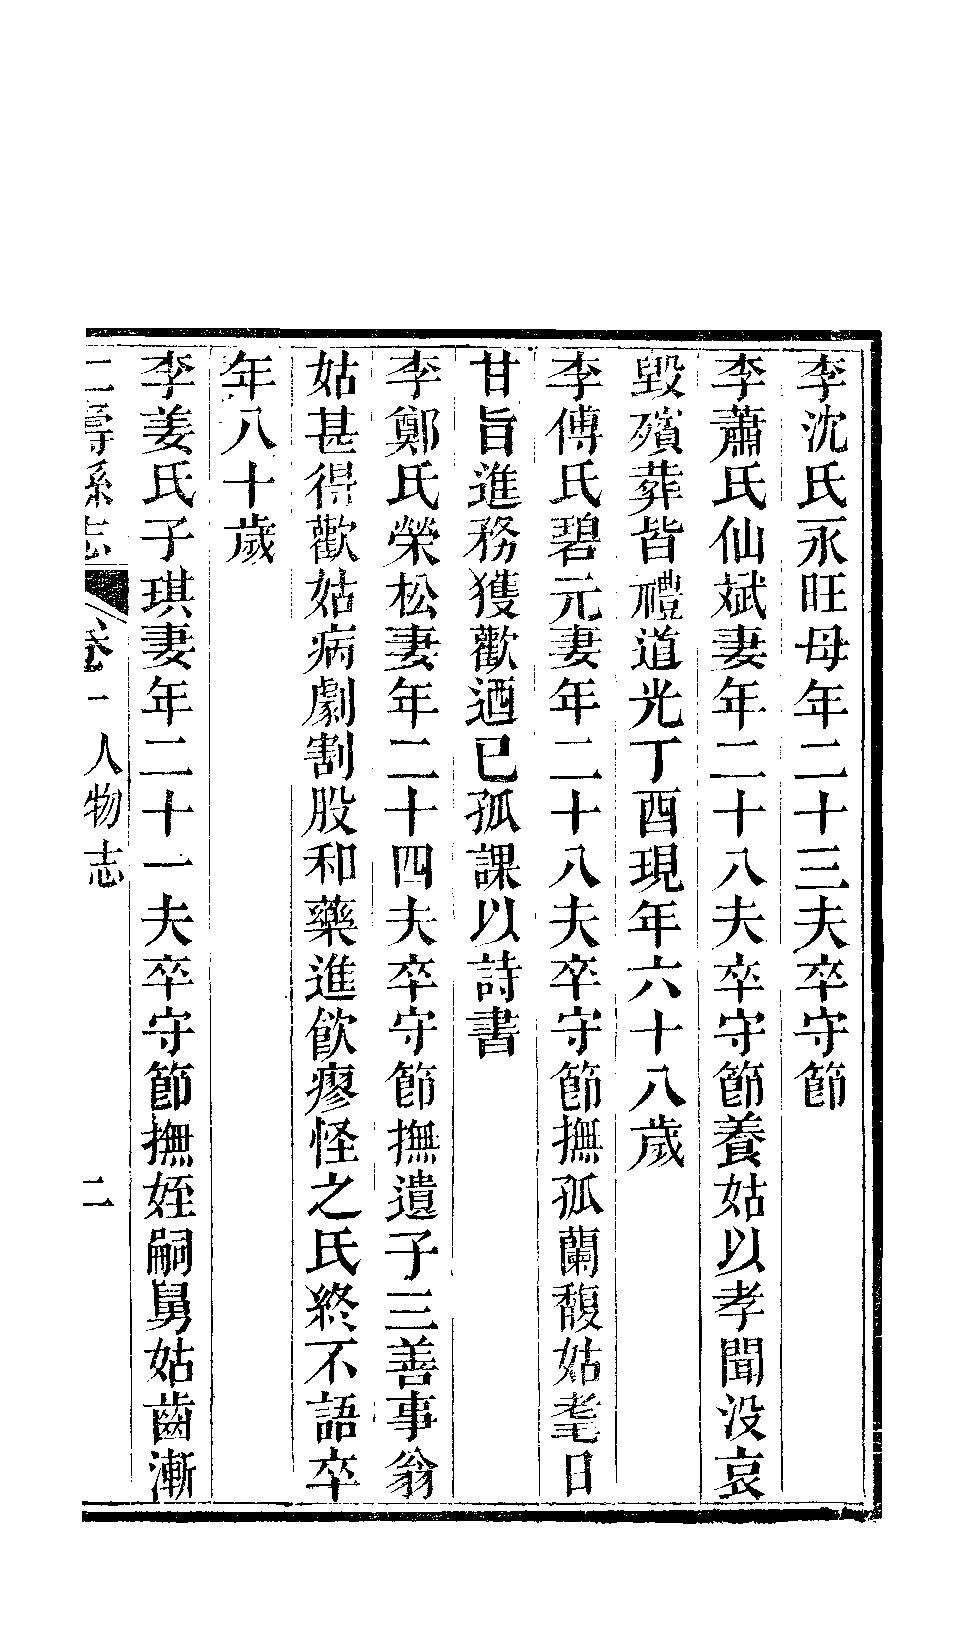 李沈氏永旺母年二十三夫卒守節
李蕭氏仙斌妻年二十八夫卒守節養姑以孝聞没哀
毀殯葬皆禮道光丁酉現年六十八歲
李傅氏碧元妻年二十八夫卒守節撫孤蘭馥姑耄日
甘旨進務獲歡迺已孤課以詩書
李鄭氏榮松妻年二十四夫卒守節撫遺子三善事翁
姑甚得歡姑病劇割股和藥進飲瘳怪之氏終不語卒
年八十歲
李姜氏子琪妻年二十一夫卒守節撫姪嗣舅姑齒漸
仁壽縣志 卷一 人物志 二